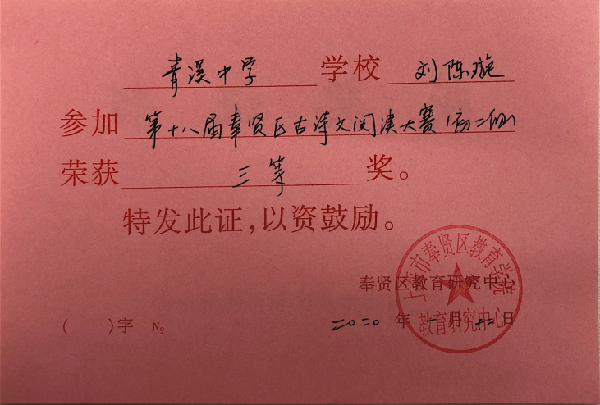 青溪中学 学校 刘陈旎
参加 第十八届奉贤区古诗文阅读大赛(初二组)
荣获 三等 奖。
特发此证,以资鼓励。
上海市奉贤区教育学院
奉贤区教育研究中心
教育研究中心
( )字 № 二0二0 年 一 月 十二 日